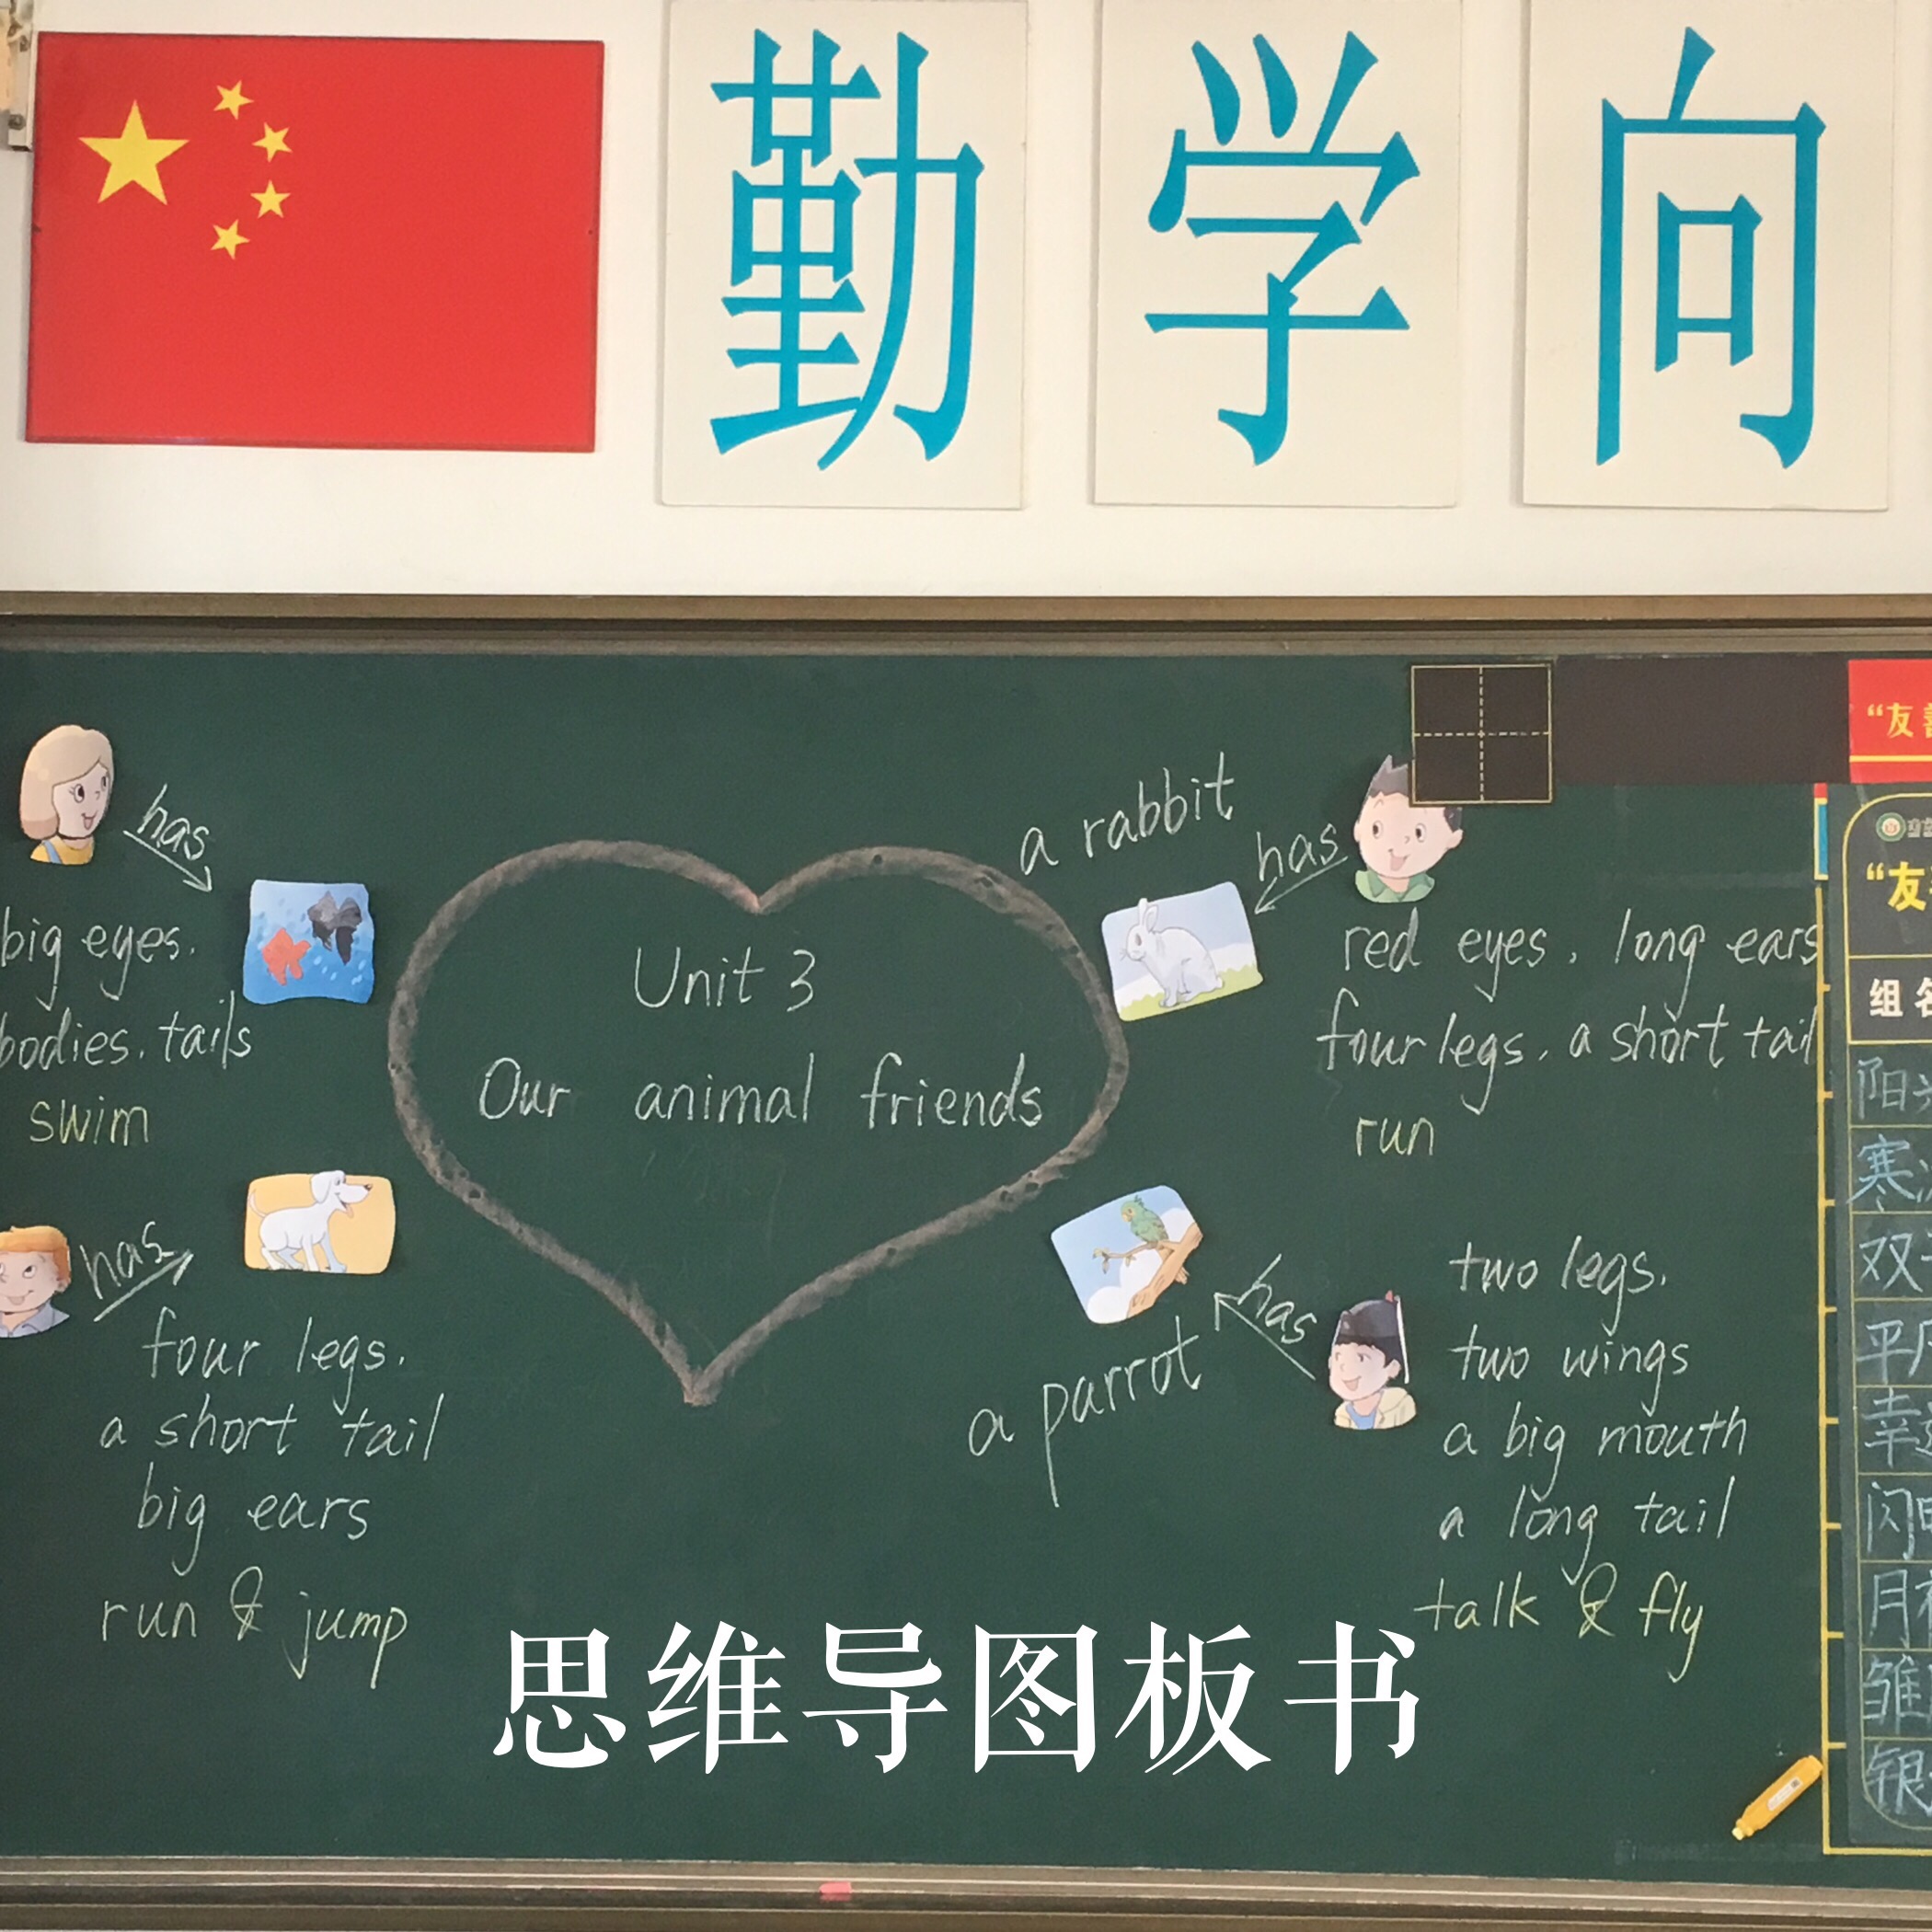 勤学向
has
big eyes.
bodies. tails
swim
has
four legs.
a short tail
big ears
run & jump
Unit 3
Our animal friends
a rabbit
has
red eyes, long ears
four legs, a short tail
run
a parrot
has
two legs.
two wings
a big mouth
a long tail
talk & fly
思维导图板书
“友善
“友
组名
阳
寒
双
平
幸
闪
月
雏
银